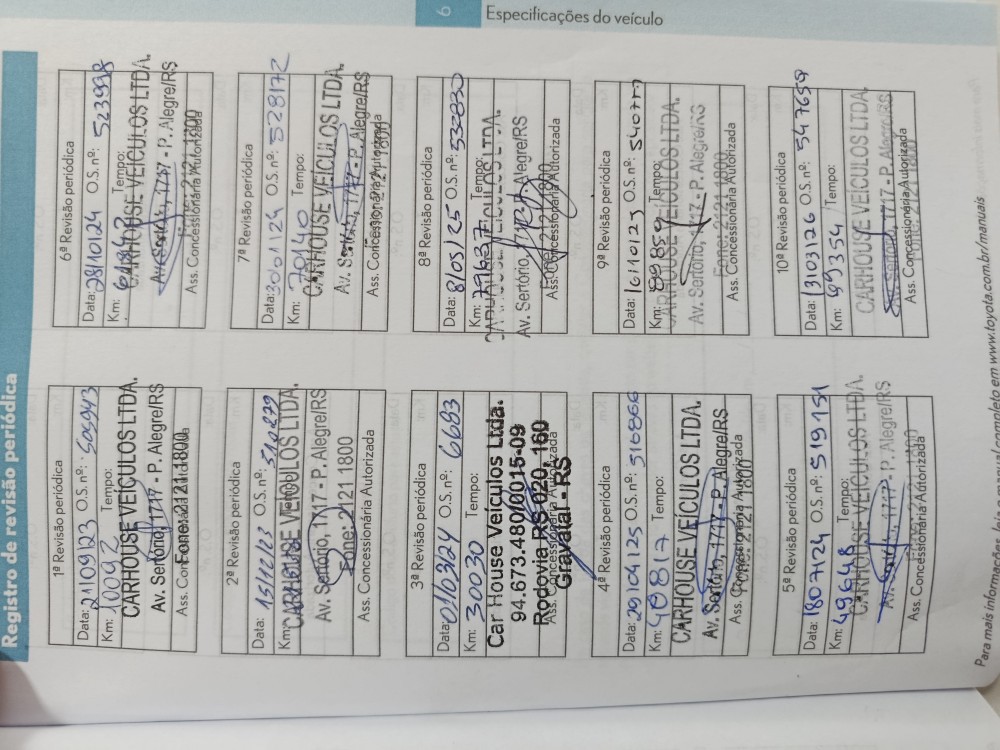 Registro de revisão periódica
1ª Revisão periódica
Data: 21/09/23 O.S. nº: 505943
Km: 10092 Tempo:
CARHOUSE VEÍCULOS LTDA.
Av. Sertório, 1717 - P. Alegre/RS
Fone: 2121 1800
Ass. Concessionária Autorizada
2ª Revisão periódica
Data: 15/12/23 O.S. nº: 510279
Km:
CARHOUSE VEÍCULOS LTDA.
Av. Sertório, 1717 - P. Alegre/RS
Fone: 2121 1800
Ass. Concessionária Autorizada
3ª Revisão periódica
Data: 01/03/24 O.S. nº: 6603
Km: 30030 Tempo:
Car House Veículos Ltda.
94.673.480/0015-09
Rodovia RS 020, 160
Gravataí - RS
Ass. Concessionária Autorizada
4ª Revisão periódica
Data: 29/04/25 O.S. nº: 516866
Km: 40817 Tempo:
CARHOUSE VEÍCULOS LTDA.
Av. Sertório, 1717 - P. Alegre/RS
Fone: 2121 1800
Ass. Concessionária Autorizada
5ª Revisão periódica
Data: 18/07/24 O.S. nº: 519151
Km: 49648 Tempo:
CARHOUSE VEÍCULOS LTDA.
Av. Sertório, 1717 - P. Alegre/RS
Ass. Concessionária Autorizada
6
Especificações do veículo
6ª Revisão periódica
Data: 28/10/24 O.S. nº: 523998
Km: Tempo:
CARHOUSE VEÍCULOS LTDA.
Av. Sertório, 1717 - P. Alegre/RS
Fone: 2121 1800
Ass. Concessionária Autorizada
7ª Revisão periódica
Data: 30/01/24 O.S. nº: 528172
Km: 70140 Tempo:
CARHOUSE VEÍCULOS LTDA.
Av. Sertório, 1717 - P. Alegre/RS
Fone: 2121 1800
Ass. Concessionária Autorizada
8ª Revisão periódica
Data: 8/05/25 O.S. nº:
Km: 79637 Tempo:
CARHOUSE VEÍCULOS LTDA.
Av. Sertório, 1717 - P. Alegre/RS
Fone: 2121 1800
Ass. Concessionária Autorizada
9ª Revisão periódica
Data: 16/10/23 O.S. nº: 540777
Km: 89859 Tempo:
CARHOUSE VEÍCULOS LTDA.
Av. Sertório, 1717 - P. Alegre/RS
Fone: 2121 1800
Ass. Concessionária Autorizada
10ª Revisão periódica
Data: 13/03/26 O.S. nº: 547659
Km: 99354 Tempo:
CARHOUSE VEÍCULOS LTDA.
Av. Sertório, 1717 - P. Alegre/RS
Fone: 2121 1800
Ass. Concessionária Autorizada
Para mais informações, completo em www.toyota.com.br/manuais